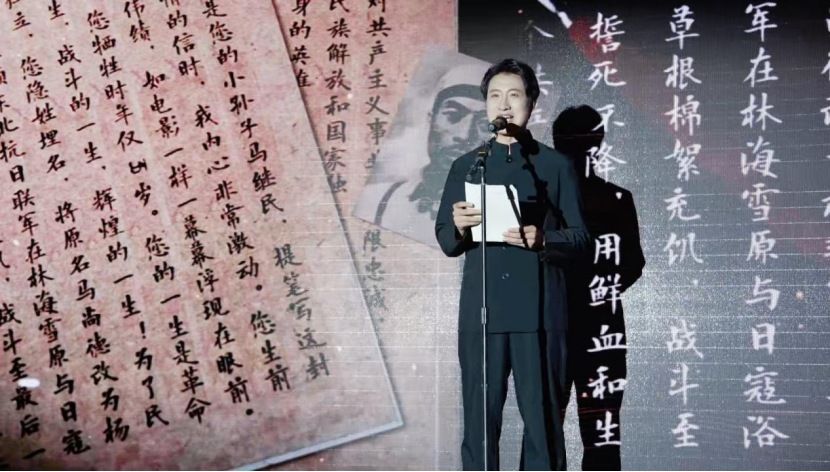 军在林海雪原与日寇浴
草根棉絮充饥，战斗至
誓死不降，用鲜血和生
对共产主义事 限忠诚，
民族解放和国家独
身的英雄
是您的小孙子马继民，提笔写这封
情的信时，我内心非常激动。您生前
伟绩，如电影一样一幕幕浮现在眼前。
您牺牲时年仅 岁。您的一生是革命
生、战斗的一生，辉煌的一生！为了民
立，您隐姓埋名，将原名马尚德改为杨
领东北抗日联军在林海雪原与日寇
战斗至最后一